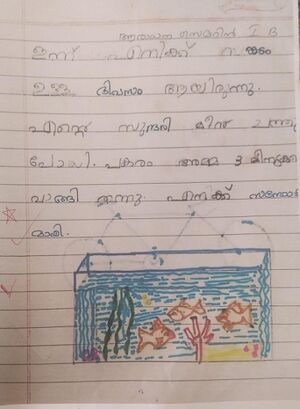 ആരാധന സെമറിൻ I B
ഇന്ന് എനിക്ക് സങ്കടം
ഉള്ള ദിവസം ആയിരുന്നു.
എന്റെ സുന്ദരി മീൻ ചത്തു
പോയി. പകരം അമ്മ 3 മീനുകളെ
വാങ്ങി തന്നു. എനക്ക് സന്തോഷ
മായി.